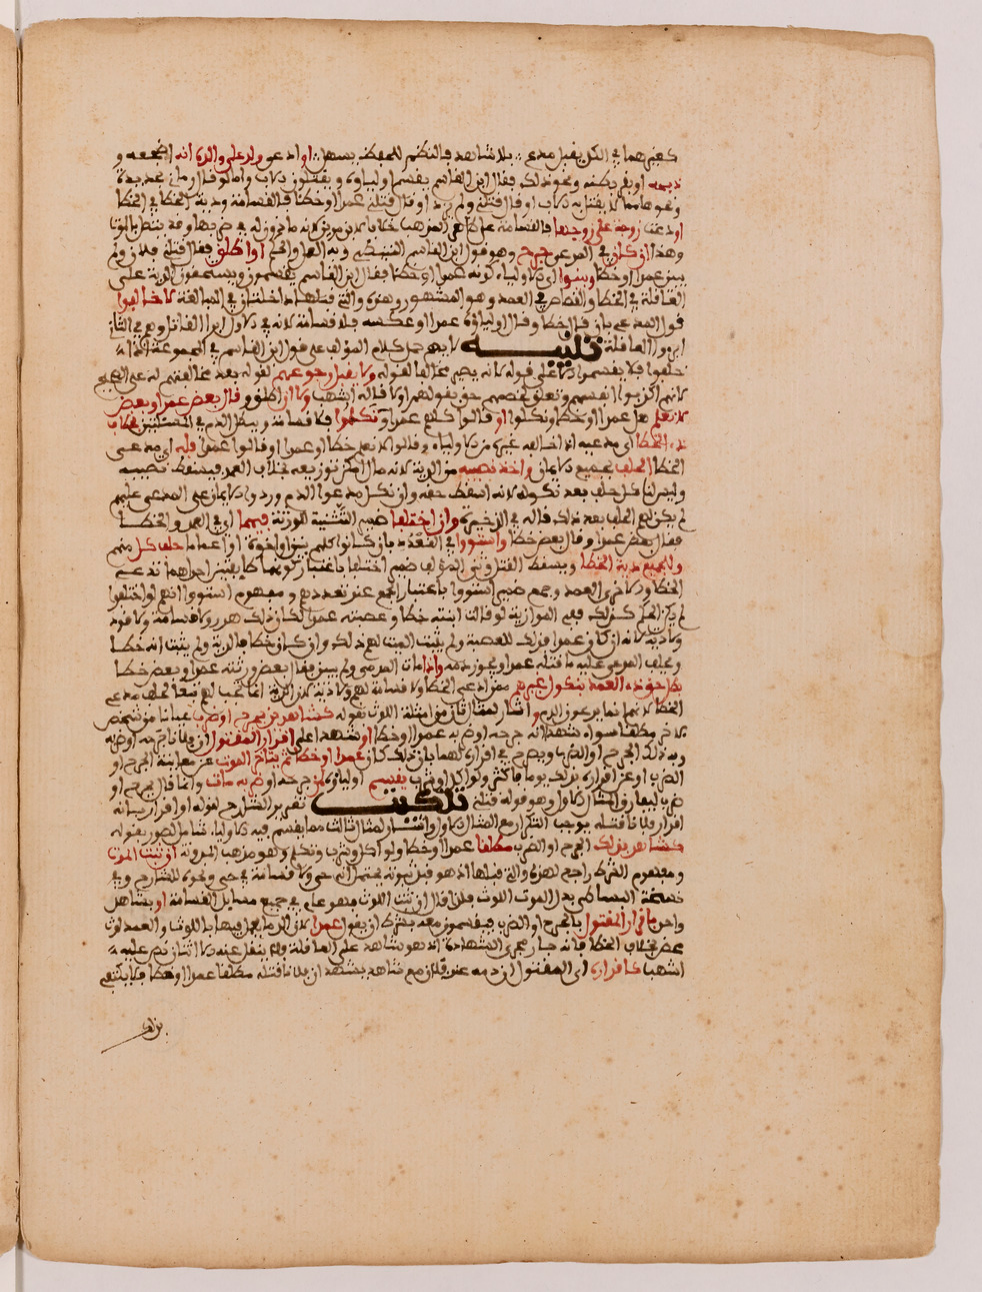 كغيرهما في الكل يقبل مدع ∴ بلا شاهد فالنظم للحفظ يسهل ∴ او ادعى ولد على والده انه اضجعه و
ذبحه او بقر بطنه ونحو ذلك فقال ابن القاسم يقسم اولياؤه ويقتلون الاب واما لو قال رماني بحديدة
ونحوها مما لا يقتل به الاب او قال قتلني ولم يزد او قال قتلني عمدا او خطئا فالقسامة ودية الخطا في الخطا
او ادعت زوجة على زوجها فالقسامة على ظاهر المذهب خلافا لابن مزين لانه ماذون له في ضربها وقد ينتهي بالموت
وهذا ان كان في المدعي جرح وهو قول ابن القاسم وبه العمل والحكم او اطلق فقال قتلني فلان ولم
يبين عمدا او خطا وبينوا اي الاولياء كونه عمدا او خطئا فقال ابن القاسم يقسمون ويستحقون الدية على
العاقلة في الخطا والقصاص في العمد وهو المشهور وهذه والتي قبلها داخلتان في المبالغة لا خالفوا
قول المدعي بان قال خطا وقال اولياؤه عمدا او عكسه فلا قسامة لانه في الاول ابرا القاتل وهم في الثاني
ابروا العاقلة تنبيه لا يصح حمل كلام المؤلف على قول ابن القاسم في المجموعة اذا
خلفوا فلا يقسموا الا على قوله لانه يصير مخالفا لقوله ولا يقبل رجوعهم لقوله بعد مخالفتهم له على الصحيح
لانهم اكذبوا انفسهم وتعلق لخصمهم حق بقولهم اولا قاله اشهب ولا ان اطلق وقال بعض عمدا وبعض
لا نعلم هل عمدا او خطا ونكلوا او قالوا كلهم عمدا ونكلوا فلا قسامة ويبطل الدم في المسئلتين بخلاف
ذي الخطا اي مدعيه اذا خالفه غيره من الاولياء وقالوا لا نعلم خطا او عمدا او قالوا عمدا فله اي مدعى
الخطا الحلف لجميع الايمان واخذ نصيبه من الدية لانه مال امكن توزيعه بخلاف العمد فيسقط نصيبه
وليس لنا كل حلف بعد نكوله لانه اسقط حقه وان نكل مدعوا الدم وردوا الايمان على المدعى عليهم
لم يكن لهم الحلف بعد ذلك قاله في الذخيرة وان اختلفا ضمير التثنية للورثة فيهما اي في العمد والخطا
فقال بعض عمدا وقال بعض خطا واستووا في التعدد بان كانوا كلهم بنين او اخوة او اعماما حلف كل منهم
وللجميع دية الخطا ويسقط القتل وثنى المؤلف ضمير اختلفا باعتبار كونهما طائفتين احداهما تدعي
الخطا والاخرى العمد وجمع ضمير استووا باعتبار الجمع عند تعددهم ومفهوم استووا انهم لو اختلفوا
لم يكن الحكم كذلك ففي الموازية لو قالت ابنته خطا وعصبته عمدا لكان ذلك هدر ولا قسامة ولا قود
ولا دية لانه ان كان عمدا فذلك للعصبة ولم يثبت الميت لهم ذلك وان كان خطا فالدية ولم يثبت انه خطا
ويحلف المدعى عليه ما قتله عمدا ويحوز دمه واذا مات المدمي ولم يبين فقال بعض ورثته عمدا وبعض خطا
بطل حق ذي العمد بنكول غيرهم ممن ادعى الخطا ولا قسامة لهم ولا دية لان الدية انما تجب لهم تبعا لحلف مدعي
الخطا لانهما انما يدعون الدم واشار لمثال ثان من امثلة اللوث بقوله كشاهدين بجرح او ضرب عيانا من شخص
لاخر مطلقا سواء شهدا انه جرحه او ضربه عمدا او خطا او شهدا على اقرار المقتول ان فلانا جرحه او ضربه
به ذلك الجرح او الضرب ويصرح في اقراره لهما بان ذلك كان عمدا او خطا ثم يتاخر الموت عن معاينة الجرح او
الضرب او عن اقراره بذلك يوما فاكثر ولو اكل او شرب يقسم اولياؤه لمن جرحه او ضربه مات وانما قال بجرح او
ضرب ليفارق المثال الاول وهو قوله قتلني تنكيت تقرير الشارح لقوله او اقرار بيانه
اقرار فلانا قتله يوجب التكرار مع المثال الاول واشار لمثال ثالث مما يقسم فيه الاولياء شامل لصور بقوله
كشاهد بذلك الجرح او الضرب مطلقا عمدا او خطا ولو اكل وشرب وتكلم وهو مذهب المدونة ان ثبت الموت
ومفهوم الشرط راجع لهذه والتي قبلها اذ هو قبل ثبوته يحتمل انه حي ولا قسامة في حي ونحوه للشارح وفي
نسخة البساطي بدل الموت اللوث فلذا قال ان ثبت اللوث فهو عام في جميع مسايل القسامة او بشاهد
واحد باقرار المقتول بالجرح او الضرب فيقسمون معه بشرط ان يقول عمدا لان الدما يعمل فيها باللوث والعمد لوث
محض بخلاف الخطا فانه جار مجرى الشهادة اذ هو شاهد على العاقلة فلم ينقل عنه الا اثنان نص عليه
اشهب كاقراره اي المقتول ان دمه عند فلان مع شاهد يشهد ان فلانا قتله مطلقا عمدا او خطا فلا يكتفى